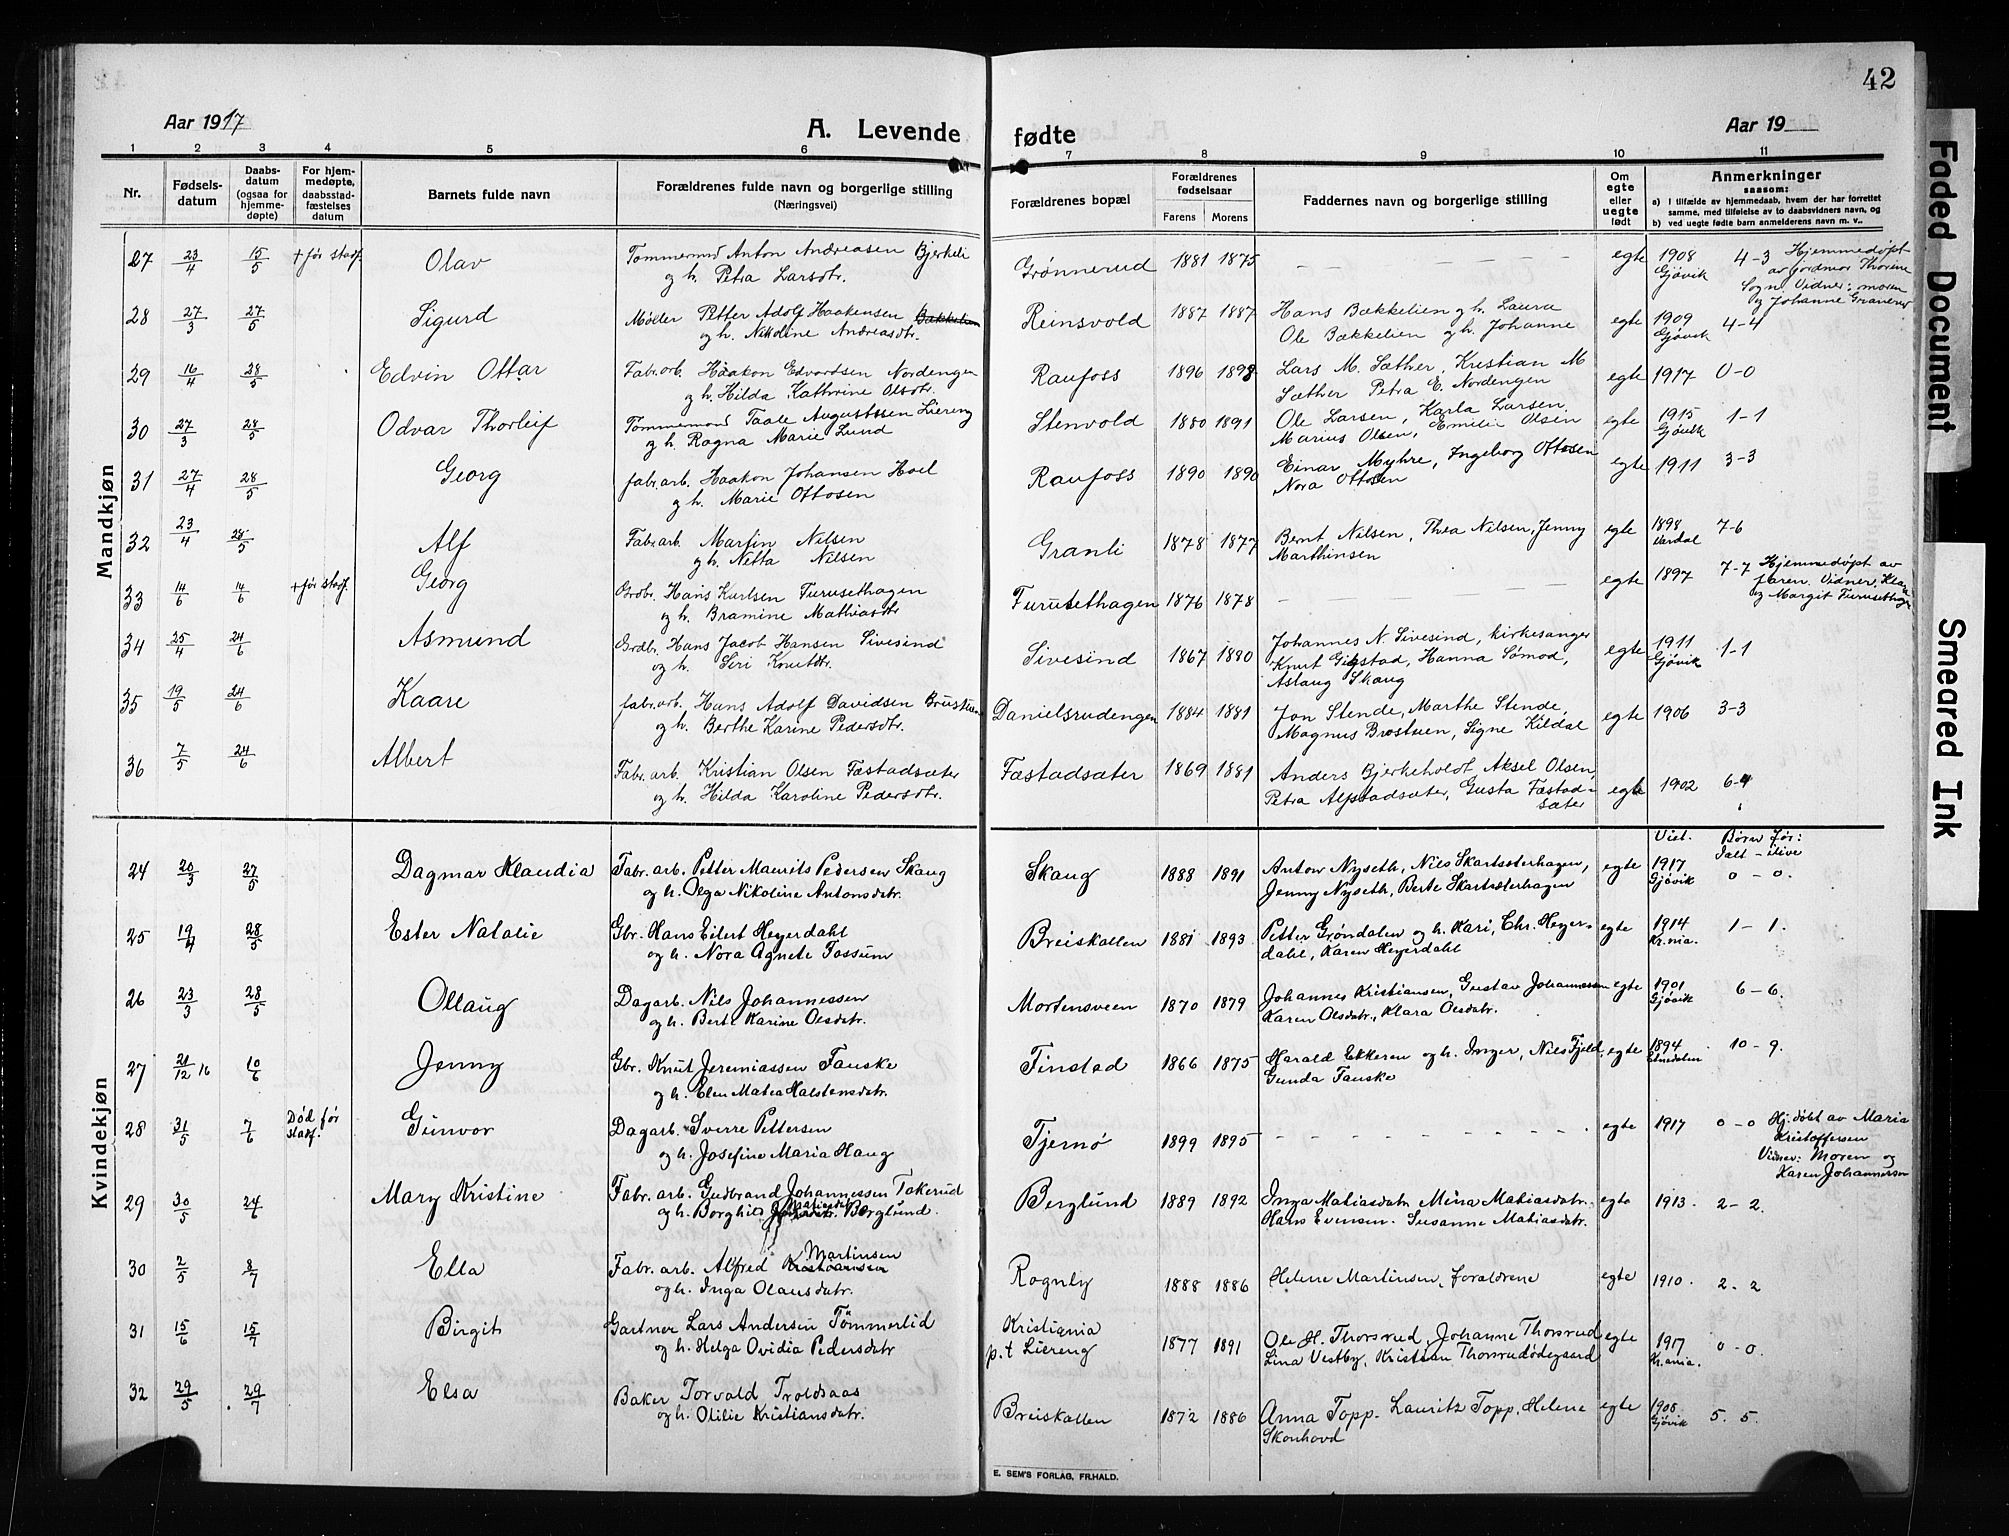 42
Aar 1917
A. Levende fødte
Aar 19
1 2 3 4 5 6 7 8 9 10 11
Nr.
Fødsels-
datum
Daabs-
datum
(ogsaa for
hjemme-
døpte)
For hjem-
medøpte,
daabsstad-
fæstelses
datum
Barnets fulde navn
Forældrenes fulde navn og borgerlige stilling
(Næringsvei)
Forældrenes bopæl
Forældrenes
fødselsaar
Farens Morens
Faddernes navn og borgerlige stilling
Om
egte
eller
uegte
født
Anmerkninger
saasom:
a) I tilfælde av hjemmedaab, hvem der har forrettet
samme, med tilføielse av to daabsvidners navn, og
b) ved uegte fødte barn anmelderens navn m. v..
Mandkjøn
27 23/4 15/5 + før stadf. Olav Tømmermd Anton Andreasen Bjerkeli
og h. Petra Larsdtr. Grønnerud 1881 1875 egte 1908 Gjøvik 4-3 Hjemmedøpt
av jordmor Thorene
Sogn. Vidner: moren
og Johanne
28 27/3 27/5 Sigurd Møller Petter Adolf Haakensen Bækkelien
og h. Nikoline Andreasdtr. Reinsvold 1887 1887 Hans Bækkelien og h. Laura
Ole Bækkelien og h. Johanne egte 1909 Gjøvik 4-4
29 16/4 28/5 Edvin Ottar Fabr. arb. Haakon Edvardsen Nordengen
og h. Hilda Kathrine Olsdtr. Raufoss 1896 1898 Lars M. Sæther, Kristian M
Sæther Petra E. Nordengen egte 1917 0-0
30 27/3 28/5 Odvar Thorleif Tømmermd Taale Augustssen Liereng
og h. Ragna Marie Lund Stenvold 1880 1891 Ole Larsen, Karla Larsen
Marius Olsen, Emilie Olsen egte 1915 Gjøvik 1-1
31 27/4 28/5 Georg fabr. arb. Haakon Johansen Hoel
og h. Marie Ottosen Raufoss 1890 1890 Einar Myhre, Ingeborg Ottosen
Nora Ottosen egte 1911 3-3
32 23/4 28/5 Alf Fabr. arb. Martin Nilsen
og h. Netta Nilsen Granli 1878 1877 Bernt Nilsen, Thea Nilsen, Jenny
Marthinsen egte 1898 Vardal 7-6
33 14/6 14/6 + før stadf. Georg Grdbr. Hans Karlsen Furusethagen
og h. Bramine Mathiasdtr Furusethagen 1876 1878 egte 1897 7-7 Hjemmedøpt av
faren. Vidner, Klara
og Margit Furusethagen
34 25/4 24/6 Asmund Grdbr. Hans Jacob Hansen Sivesind
og h. Siri Knutdtr. Sivesind 1867 1880 Johannes N. Sivesind, kirkesanger
Knut Gigstad, Hanna Sømod,
Aslaug Skaug egte 1911 Gjøvik 1-1
35 19/5 24/6 Kaare fabr. arb. Hans Adolf Davidsen Brustuen
og h. Berthe Karine Pedersdtr. Danielsrudengen 1884 1881 Jon Stende, Marthe Stende,
Magnus Brostuen, Signe Kildal egte 1906 3-3
36 7/5 24/6 Albert Fabr. arb. Kristian Olsen Fæstadsæter
og h. Hilda Karoline Pedersdtr. Fæstadsæter 1869 1881 Anders Bjerkeholdt Aksel Olsen,
Petra Alfstadsæter, Gusta Fæstad-
sæter egte 1902 6-4
Kvindekjøn
Viet. Børn før:
Ialt - ilive
24 20/3 27/5 Dagmar Klaudia Fabr. arb. Petter Maurits Pedersen Skaug
og h. Olga Nikoline Antonsdatr. Skaug 1888 1891 Anton Nyseth, Nils Skartsæterhagen,
Jenny Nyseth, Berte Skartsæterhagen egte 1917 Gjøvik 0-0.
25 19/4 28/5 Ester Natalie Gbr. Hans Eilert Heyerdahl
og h. Nora Agnete Fossum Breiskallen 1881 1893 Petter Grøndalen og h. Kari, Chr. Heyer-
dahl, Karen Heyerdahl egte 1914 Kr.nia. 1-1.
26 23/3 28/5 Ollaug Dagarb. Nils Johannessen
og h. Berte Karine Olsdatr. Mortensveen 1870 1879 Johannes Kristiansen, Gustav Johannessen
Karen Olsdatr., Klara Olsdatr. egte 1901 Gjøvik 6-6.
27 21/12 16 10/6 Jenny Gbr. Knut Jeremiassen Fauske
og h. Elen Matea Halstensdatr. Finstad 1866 1875 Harald Ekkeren og h. Inger, Nils Fjeld,
Gunda Fauske egte 1894 Etnedalen 10-9.
28 31/5 7/6 Død før
stadf. Gunvor Dagarb. Sverre Pettersen
og h. Josefine Maria Haug Tjernø 1899 1895 egte 1917 0-0 Hj. døbt av Maria
Kristoffersen
Vidner: Moren og
Karen Johannessen
29 30/5 24/6 Mary Kristine Fabr. arb. Gudbrand Johannessen Takerud
og h. Borghild Matiasdatr. Berglund. Berglund 1889 1892 Inga Matiasdatr. Mina Matiasdatr.
Hans Evensen. Susanne Matiasdatr. egte 1913. 2-2.
30 2/5 8/7 Ella Fabr. arb. Alfred Kristiansen Martinsen
og h. Inga Olausdatr. Rognly 1888 1886 Helene Martinsen, forældrene egte 1910. 2-2
31 15/6 15/7 Birgit Gartner Lars Andersen Tömmerlid
og h. Helga Ovidia Pedersdatr Kristiania
p.t Liereng 1877 1891 Ole H. Thorsrud, Johanne Thorsrud
Lina Vestby, Kristian Thorsrudødegaard egte 1917 Kr.ania. 0-0.
32 29/5 29/7 Elsa Baker Torvald Troldsaas
og h. Otilie Kristiansdatr. Breiskallen 1872 1886 Anna Topp. Lauritz Topp, Helene
Skonhovd egte 1908 Gjøvik 5. 5.
E. SEM'S FORLAG, FR.HALD.
Faded Document
Smeared Ink